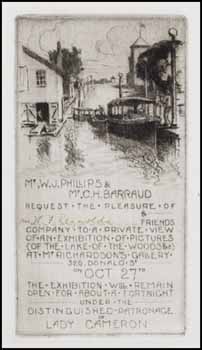 Mr. W. J. PHILLIPS &
Mr. C. H. BARRAUD
REQUEST · THE · PLEASURE · OF
& FRIENDS
COMPANY · TO · A · PRIVATE · VIEW
OF · AN · EXHIBITION · OF · PICTURES
(OF THE · LAKE · OF · THE · WOODS &c)
AT · Mr RICHARDSON'S · GALLERY ·
DONALD · St
ON OCT 27TH
THE · EXHIBITION · WILL · REMAIN
OPEN · FOR · ABOUT · A · FORTNIGHT
UNDER · THE
DISTINGUISHED · PATRONAGE
OF
LADY CAMERON